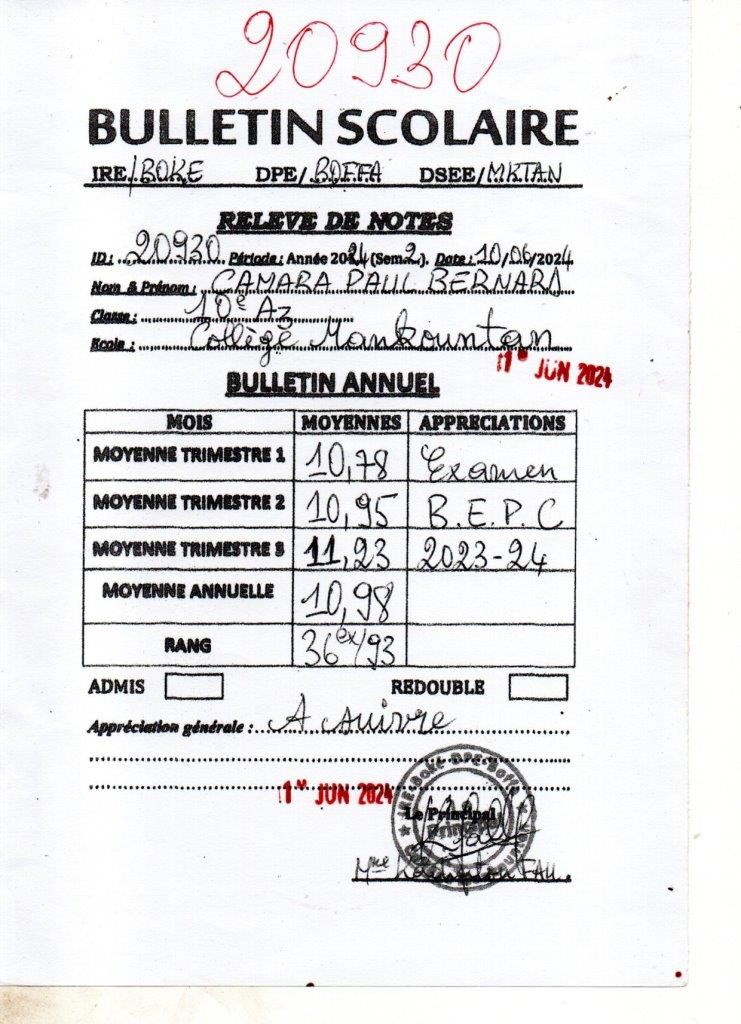 20930
BULLETIN SCOLAIRE
IRE/BOKE DPE/BOFFA DSEE/MKTAN
RELEVE DE NOTES
ID : 20930 Période : Année 2024 (Sem2). Date : 10/06/2024
Nom & Prénom : CAMARA PAUL BERNARD
Classe : 10e A3
Ecole : Collège Mankountan
1 JUN 2024
BULLETIN ANNUEL
MOIS MOYENNES APPRECIATIONS
MOYENNE TRIMESTRE 1 10,78 Examen
MOYENNE TRIMESTRE 2 10,95 B.E.P.C
MOYENNE TRIMESTRE 3 11,23 2023-24
MOYENNE ANNUELLE 10,98
RANG 36ex/93
ADMIS REDOUBLE
Appréciation générale : A suivre
1 JUN 2024
IRE-Boké-DPE-Boffa
Le Principal
Mme FALL